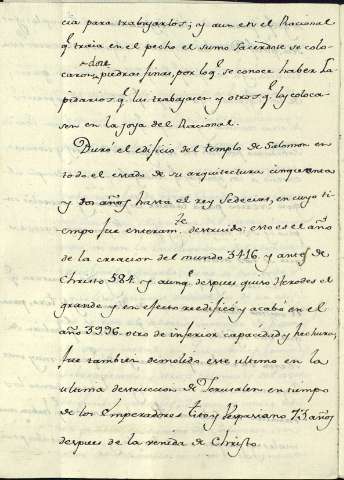 cia para trabajarlos; y aun en el Racional
qᵉ traia en el pecho el sumo Sacerdote se colo-
doce
caron piedras finas, por loqᵉ se conoce haber La-
pidarios qᵉ las trabajasen y otros qᵉ las coloca-
sen en la joya del Racional.
Duró el edificio del templo de Salomon en
todo el estado de su arquitectura cinquenta
y dos años hasta el rey Sedecias, en cuyo ti-
empo fue enteramᵗᵉ destruido: esto es el año
de la creacion del mundo 3416 y antes de
Christo 584. y aunqᵉ despues quiso Herodes el
grande y en efecto reedificó y acabó en el
año 3996. otro de inferior capacidad y hechura,
fue tambien demolido este ultimo en la
ultima destruccion de Jerusalen en tiempo
de los Emperadores Tito y Vespasiano 73 años
despues de la venida de Christo.